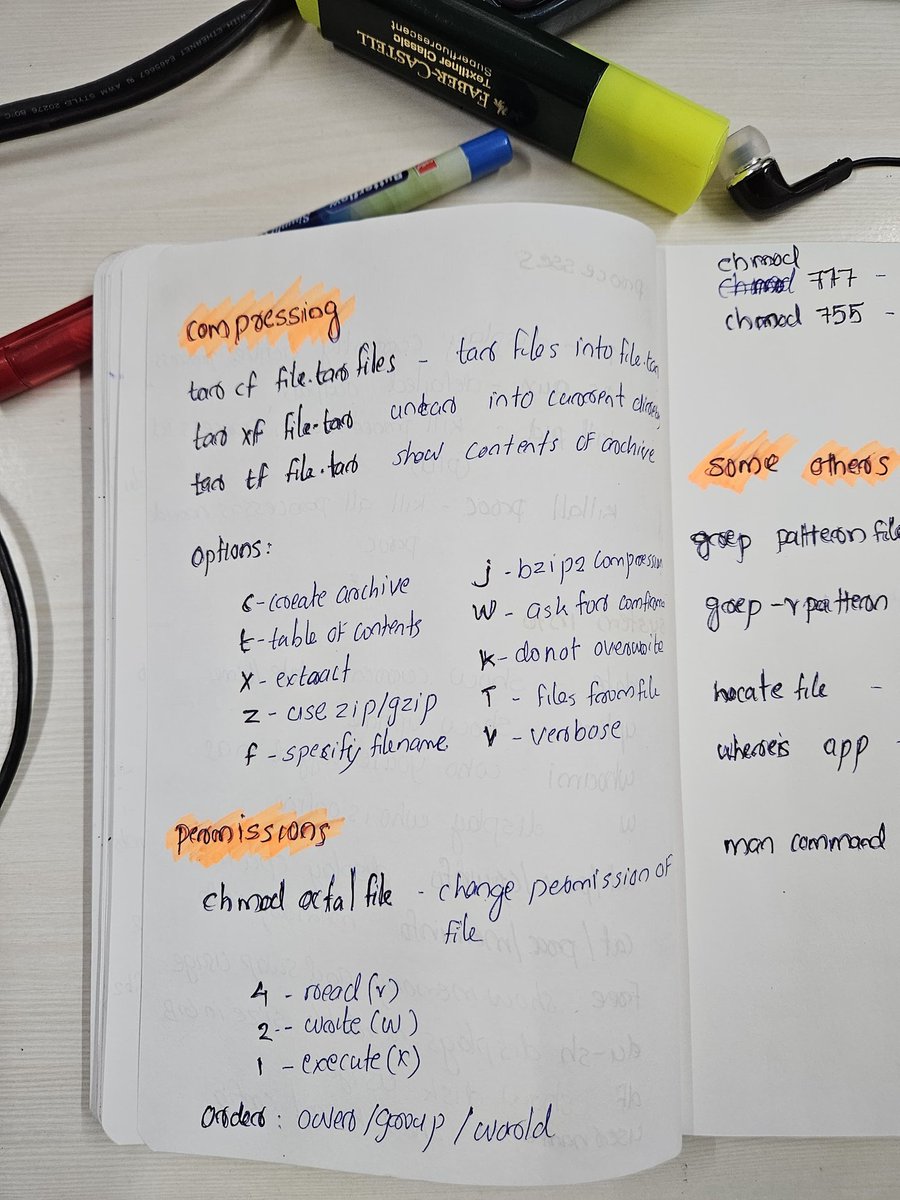 FABER-CASTELL
Textliner Classic
Superfluorescent
Butterflow
compressing
tar cf file.tar files - tar files into file.tar
tar xf file.tar untar into current direc
tar tf file.tar show contents of archive
options:
c - create archive
t - table of contents
x - extract
z - use zip/gzip
f - specify filename
j - bzip2 compression
w - ask for confirma
k - do not overwrite
T - files from file
v - verbose
permissions
chmod octal file - change permission of
file
4 - read (r)
2 - write (w)
1 - execute (x)
order: owner/group/world
chmod
777 -
chmod 755 -
some others
grep pattern file
grep -r pattern
locate file -
whereis app -
man command